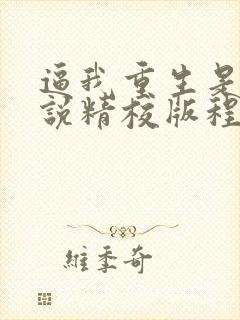 逼我重生是
說精校版程
維季奇